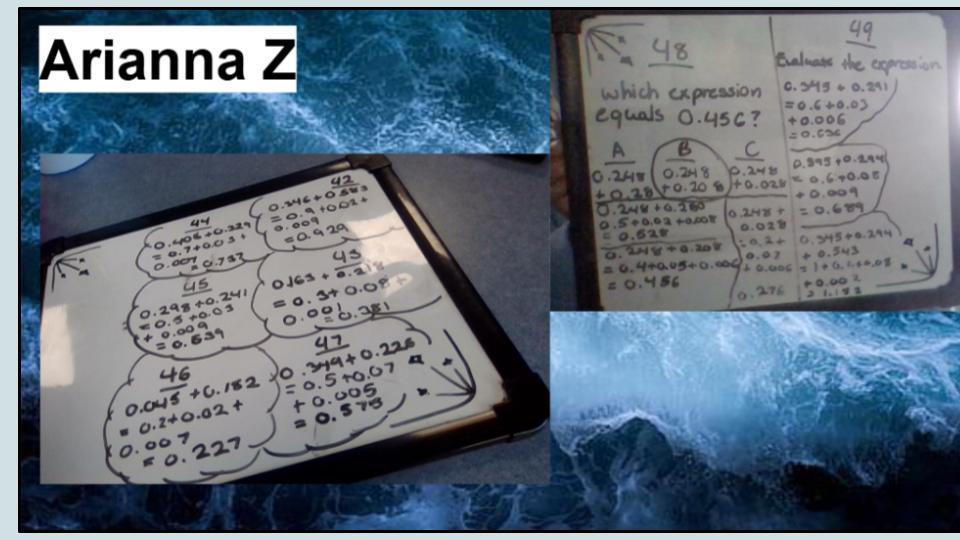 Arianna Z
44
0.406+0.329
= 0.7+0.03+
0.007 = 0.737
42
0.346+0.583
= 0.9+0.02+
0.009
=0.929
45
0.298+0.241
=0.5+0.03
+ 0.009
= 0.539
43
0.163 + 0.218
= 0.3+ 0.08+
0.001
= 0.381
46
0.045 +0.182
= 0.2+0.02+
0.007
= 0.227
47
0.349+0.226
= 0.5+0.07
+ 0.005
= 0.575
48
which expression
equals 0.456?
A
0.248
+ 0.28
B
0.248
+0.208
C
0.248
+0.028
0.248+0.280
0.5+0.02+0.008
= 0.528
0.248 +0.208
= 0.4+0.05+0.006
= 0.456
0.248+
0.028
0.2+
0.07
+ 0.006
0.276
49
Evaluate the expression
0.345 + 0.291
=0.6+0.03
+0.006
=0.636
0.395+0.294
= 0.6+0.08
+ 0.009
= 0.689
0.345+0.294
+ 0.543